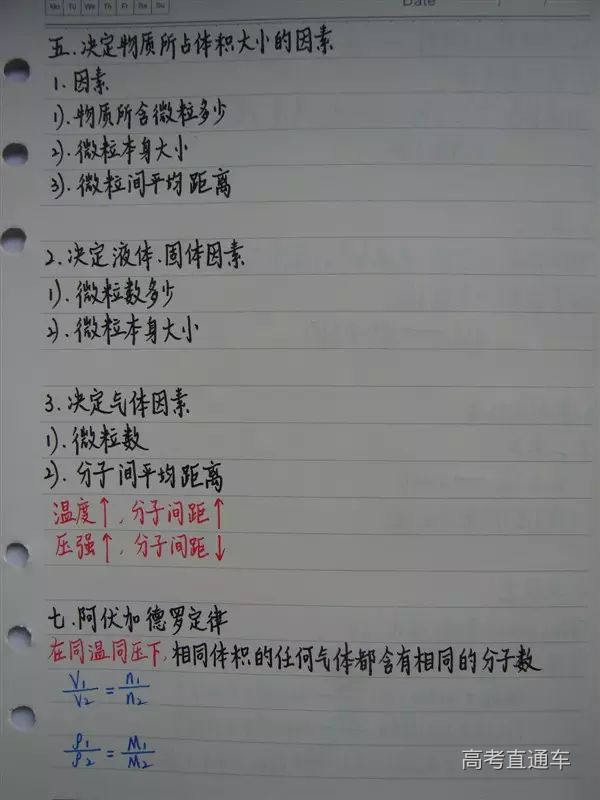 Mo Tu We Th Fr Sa Su
Date / /
五.决定物质所占体积大小的因素
1.因素
1).物质所含微粒多少
2).微粒本身大小
3).微粒间平均距离
2.决定液体.固体因素
1).微粒数多少
2).微粒本身大小
3.决定气体因素
1).微粒数
2).分子间平均距离
温度↑,分子间距↑
压强↑,分子间距↓
七.阿伏加德罗定律
在同温同压下,相同体积的任何气体都含有相同的分子数
V₁/V₂=n₁/n₂
ρ₁/ρ₂=M₁/M₂
高考直通车